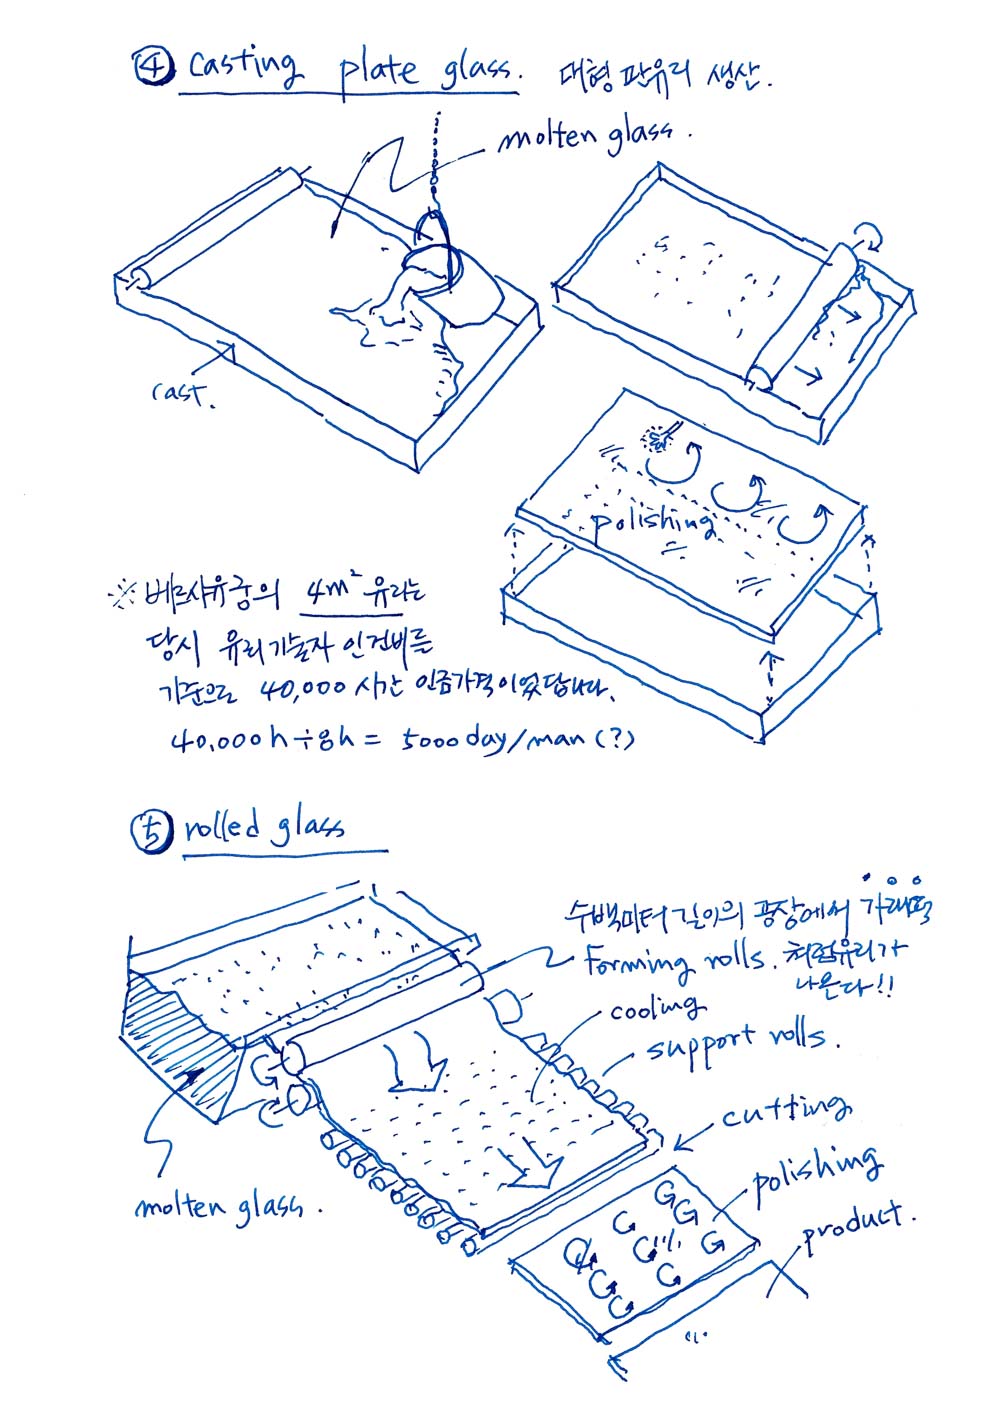 ④ casting plate glass. 대형 판유리 생산.
molten glass.
cast.
polishing
※ 베르사유궁의 4m² 유리는
당시 유리기술자 인건비를
기준으로 40,000 시간 임금가격이었답니다.
40,000h÷8h = 5000day/man (?)
⑤ rolled glass
수백미터 길이의 공장에서 가래떡
Forming rolls. 처럼유리가
나온다!!
cooling
support rolls.
cutting
polishing
product.
molten glass.